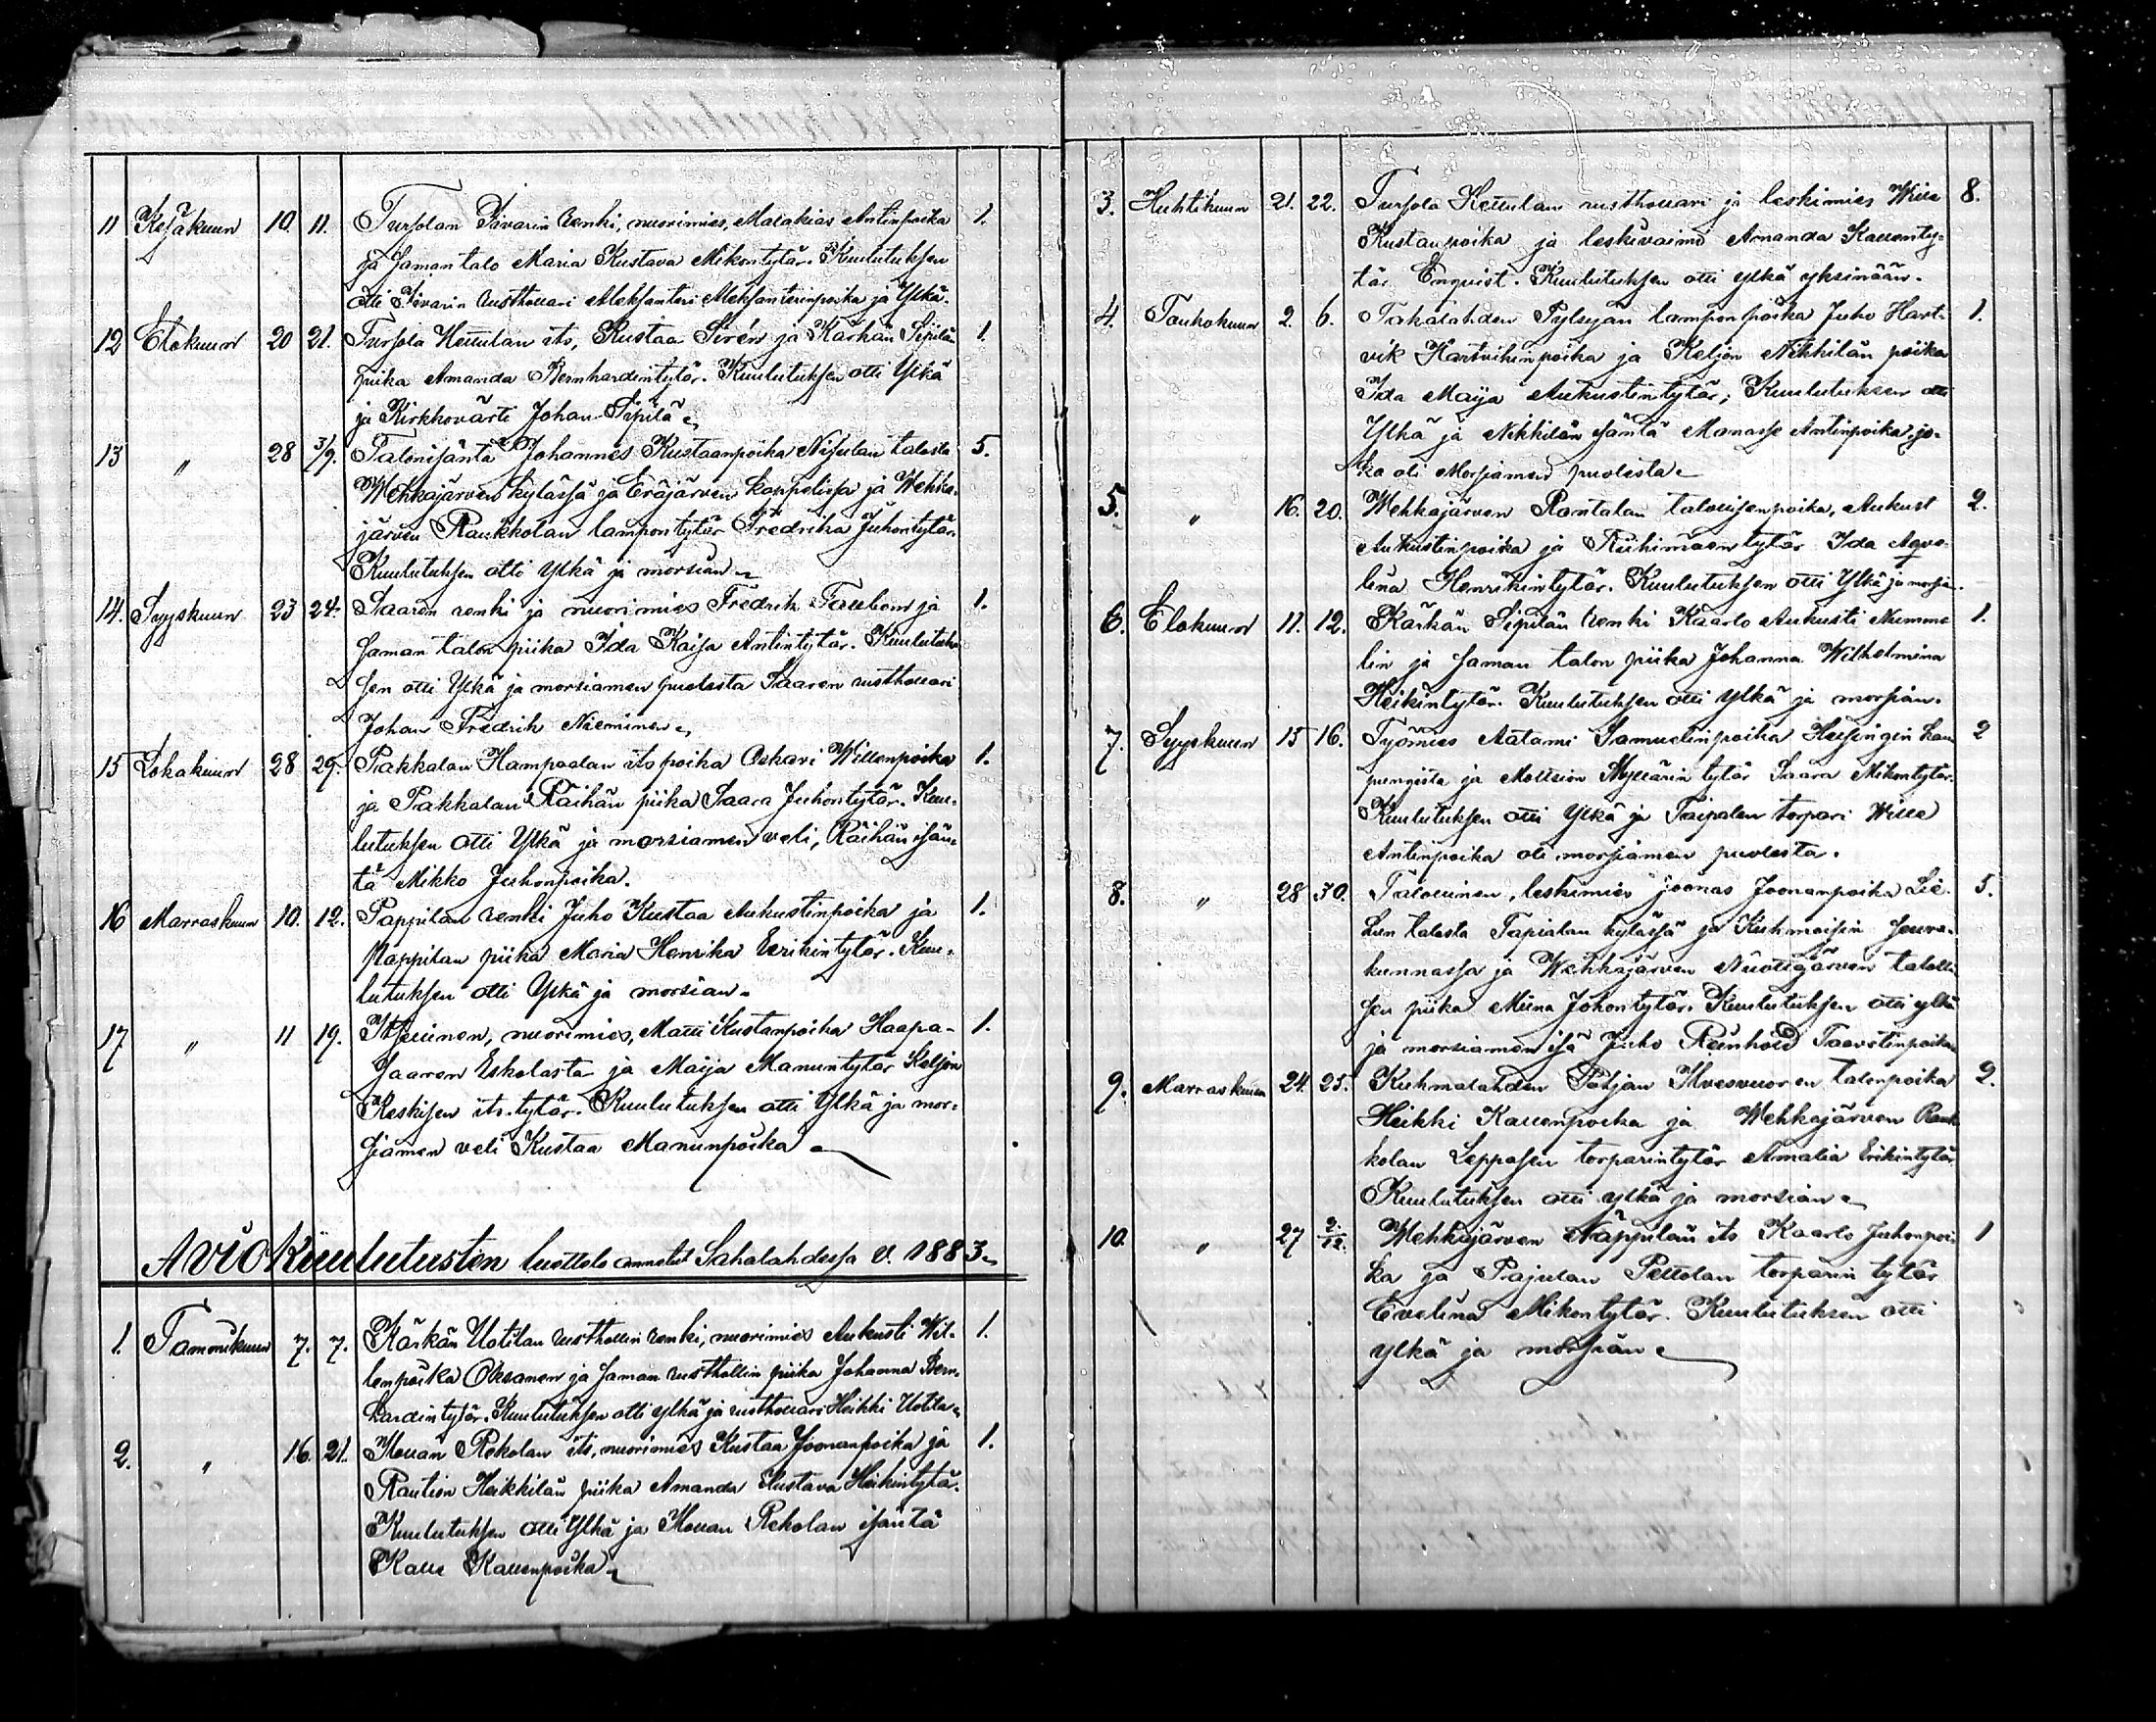 11 Kesäkuun 10. 11. Tursolan Iivarin renki, nuorimies, Malakias Antinpoika 1.
ja saman talo Maria Kustava Mikontytär. Kuulutuksen
otti Iivarin rusthollari Aleksanteri Aleksanterinpoika ja Ylkä.
12 Elokuun 20 21. Tursola Heikkulan its, Kustaa Sirén ja Kärkän Sipilän 1.
piika Amanda Bernhardintytär. Kuulutuksen otti Ylkä
ja Kirkkovärti Johan Sipilä
13 " 28 3/9. Talonisäntä Johannes Kustaanpoika Nisulan talosta 5.
Wehkajärven kylässä ja Eräjärven kappelissa ja Wehka-
järven Raukkolan lampontytär Fredrika Juhontytär.
Kuulutuksen otti Ylkä ja morsian
14. Syyskuun 23 24. Saaren renki ja nuorimies Fredrik ja 1.
saman talon piika Ida Kaisa Antintytär. Kuulutuk-
sen otti Ylkä ja morsiamen puolesta Saaren rusthollari
Johan Fredrik Nieminen
15 Lokakuun 28 29. Pakkalan Hampaalan its poika Oskari Willenpoika 1.
ja Pakkalan Räihän piika Saara Juhontytär. Kuu-
lutuksen otti Ylkä ja morsiamen veli, Räihän isän-
tä Mikko Juhonpoika.
16 Marraskuun 10. 12. Pappilan renki Juho Kustaa Aukustinpoika ja 1.
Pappilan piika Maria Henrika Eerikintytär. Kuu-
lutuksen otti Ylkä ja morsian.
17 " 11 19. Itsellinen, nuorimies, Matti Kustanpoika Haapa- 1.
saaren Eskolasta ja Maija Manuntytär Keljon
Keskisen its. tytär. Kuulutuksen otti Ylkä ja mor-
siamen veli Kustaa Manunpoika
Avio Kuulutusten luettelo annetut Sahalahdessa v. 1883
1. Tammikuun 7. 7. Kärkän Uotilan rusthollin renki, nuorimies Aukusti Wil- 1.
lenpoika Oksanen ja saman rusthollin piika Johanna Bern-
hardintytär. Kuulutuksen otti ylkä ja rusthollari Heikki Uotila
2. " 16. 21. Rekolan its, nuorimies Kustaa Joonanpoika ja 1.
Raution Heikkilän piika Amanda Kustava Heikintytär.
Kuulutuksen otti Ylkä ja Rekolan isäntä
Kalle Kallenpoika
3. Huhtikuun 21. 22. Tursola Heikkulan rusthollari ja leskimies Wille 8.
Kustanpoika ja leskivaimo Amanda Kallenty-
tär Enqvist. Kuulutuksen otti ylkä yksinään.
4. Toukokuun 2. 6. Takalahden lamponpoika Juho Hart- 1.
vik Hartvikinpoika ja Keljon Nikkilän piika
Ida Maija Aukustintytär; Kuulutuksen otti
Ylkä ja Nikkilän isäntä Manasse Antinpoika, jo-
ka oli Morsiamen puolesta
5. " 16. 20. Wehkajärven Rantalan talollisenpoika, Aukust 2.
Aukustinpoika ja Riihimäen tytär Ida Agvo-
liina Henrikintytär. Kuulutuksen otti Ylkä ja morsia.
6. Elokuun 11. 12. Kärkän Sipilän renki Kaarlo Aukusti Numme- 1.
lin ja saman talon piika Johanna Wilhelmina
Heikintytär. Kuulutuksen otti Ylkä ja morsian.
7. Syyskuun 15 16. Työmies Aatami Samuelinpoika Helsingin kau- 2
pungista ja Moltsion Myllärin tytär Saara Mikontytär.
Kuulutuksen otti Ylkä ja Taipalen torpari Wille
Antinpoika oli morsiamen puolesta.
8. " 28 30. Talollinen, leskimies Joonas Joonanpoika 5.
talosta Tapialan kylässä ja Kuhmoisin seura-
kunnassa ja Wehkajärven talolli-
sen piika Miina Johontytär. Kuulutuksen otti ylkä
ja morsiamen isä Juho Reinhold Taavetinpoika
9. Marraskuun 24. 25. Kuhmalahden Pohjan Ilvesvuoren talonpoika 2.
Heikki Kallenpoika ja Wehkajärven Rauk-
kolan Leppäsen torparintytär Amalia Erikintytär
Kuulutuksen otti ylkä ja morsian
10. " 27 2/12. Wehkajärven Näppilän its Kaarlo Juhonpoi- 1
ka ja Pajulan Peltolan torparin tytär
Evelina Mikontytär. Kuulutuksen otti
ylkä ja morsian